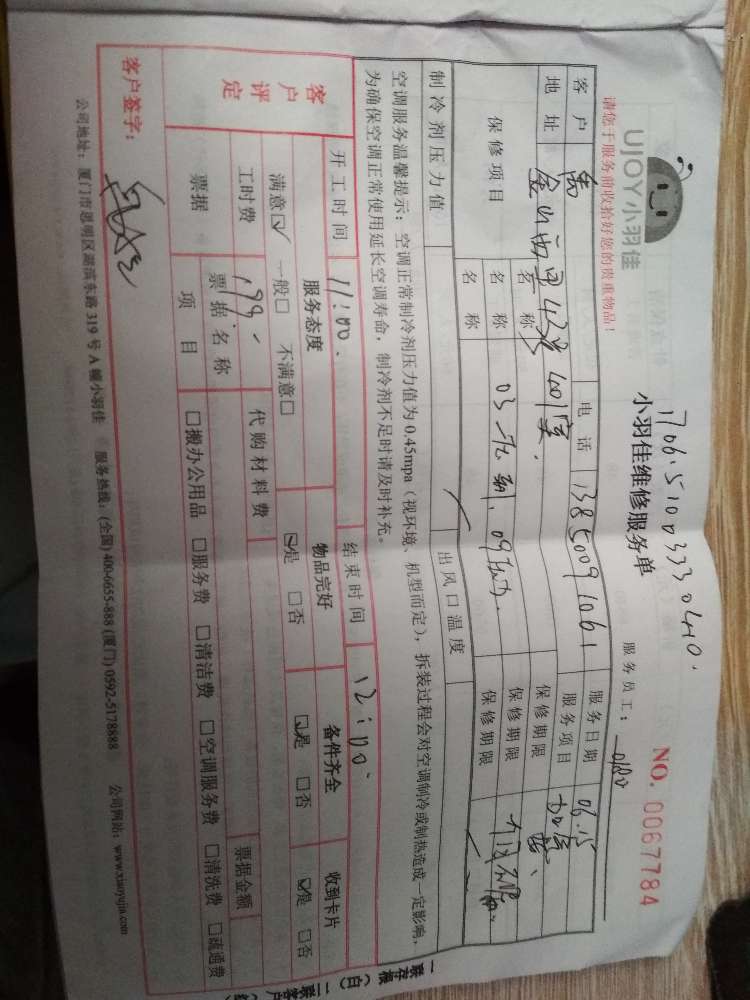 UJOY小羽佳
请您于服务前收拾好您的贵重物品!
1706151003330440.
小羽佳维修服务单
NO. 0067784
服务员工:
客户 电话 13850091061 服务日期 06.15
地址 服务项目
保修项目 名称 保修期限
名称 保修期限
名称 保修期限
制冷剂压力值 出风口温度
空调服务温馨提示:空调正常制冷剂压力值为0.45mpa(视环境、机型而定),拆装过程会对空调制冷或制热造成一定影响,
为确保空调正常使用延长空调寿命,制冷剂不足时请及时补充。
开工时间 11:00. 结束时间 12:00.
客户评定 服务态度 物品完好 备件齐全 收到卡片
满意☑ 一般□ 不满意□ ☑是 □否 ☑是 □否 ☑是 □否
工时费 199.- 代购材料费 票据金额
票据 票据名称
项目 □搬办公用品 □服务费 □清洁费 □空调服务费 □清洗费 □疏通费
客户签字:
公司地址:厦门市思明区湖滨东路319号A幢小羽佳 服务热线:(全国)400-6655-888(厦门)0592-5178888 公司网站:www.xiaoyujia.com
一联存根(白)二联客户